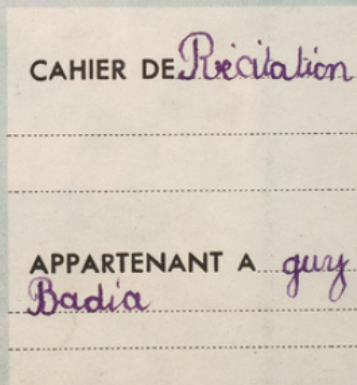 CAHIER DE Récitation
APPARTENANT A guy
Badia